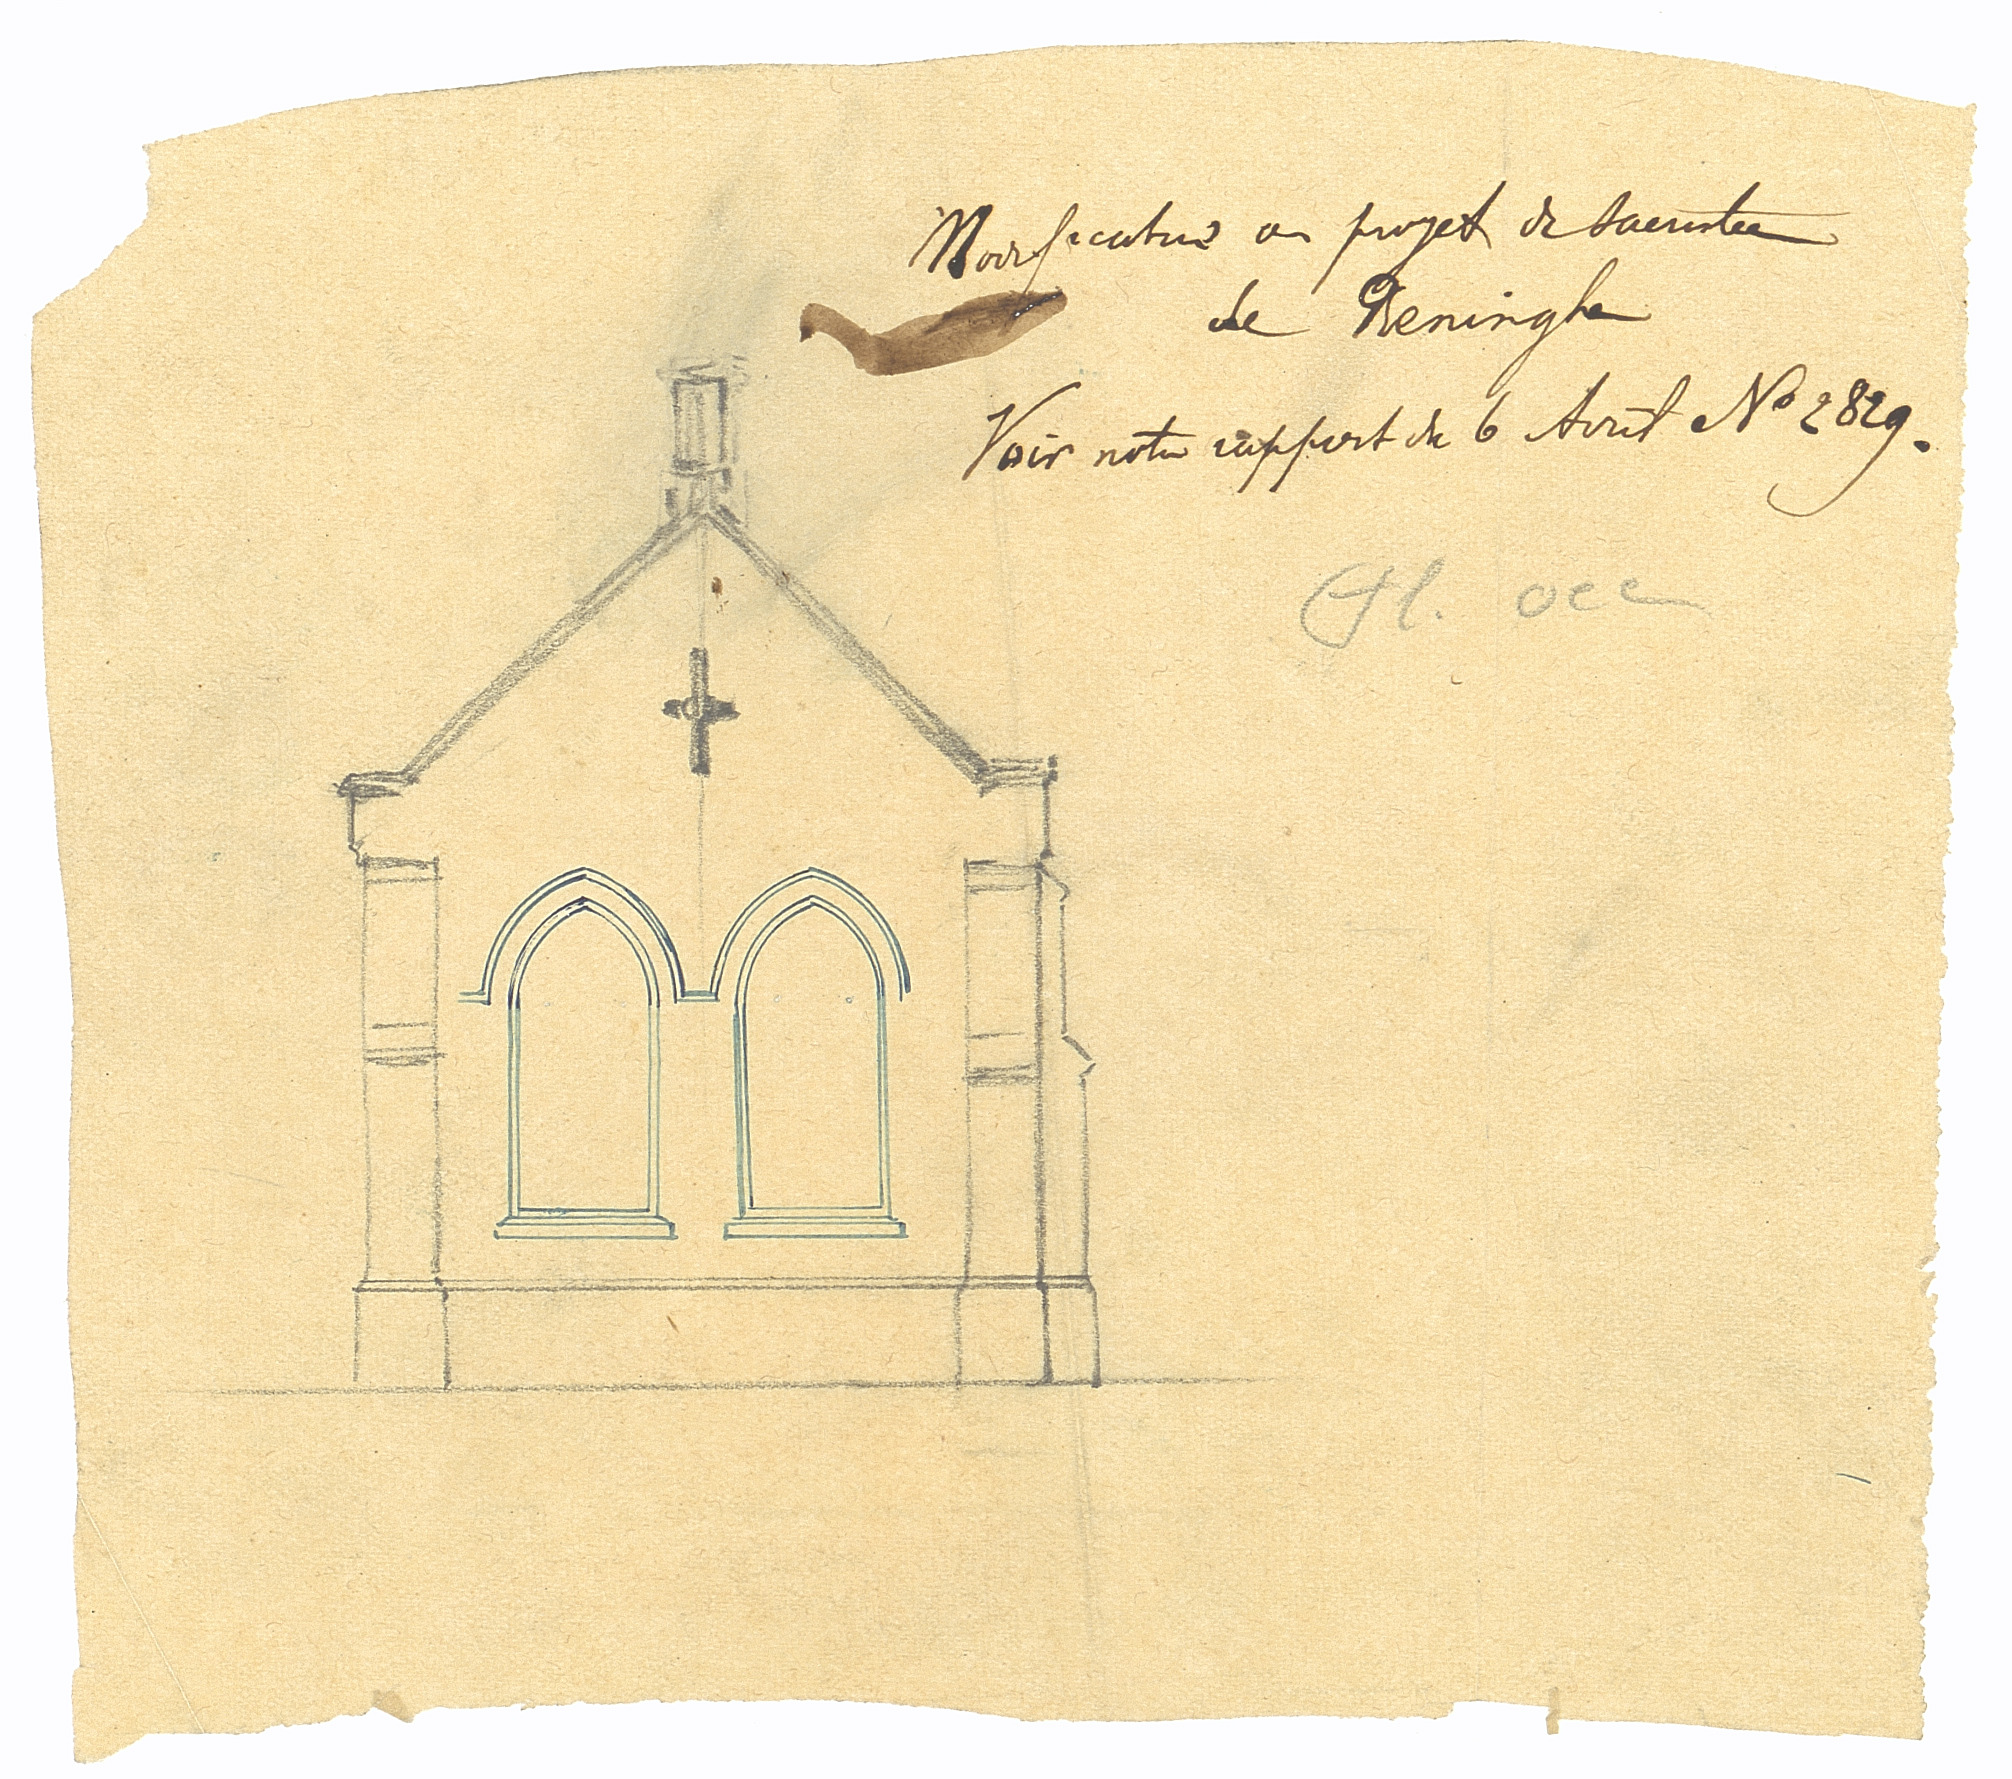 Modifications au projet de sacristie
de Reninghe
Voir notre rapport du 6 Avril No 2829.